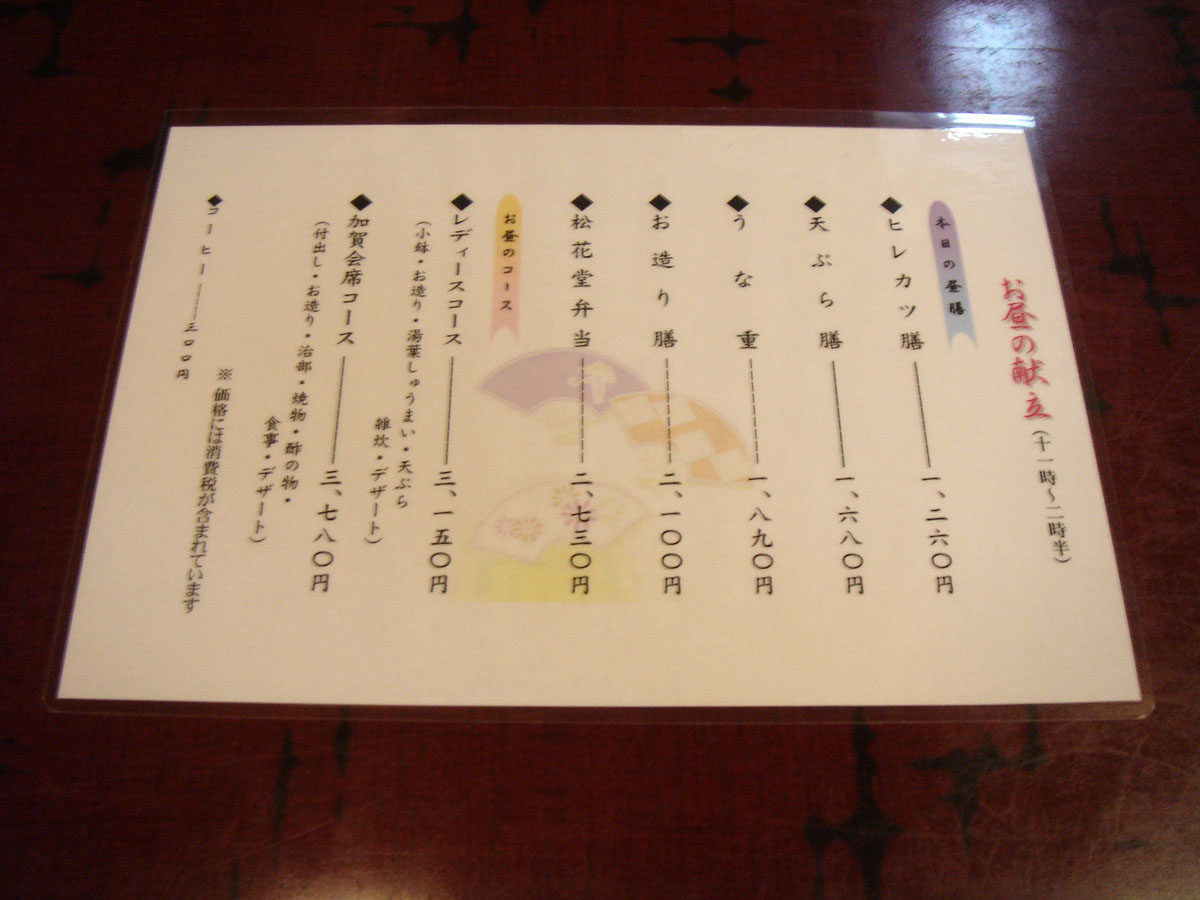 お昼の献立(十一時〜二時半)
本日の昼膳
◆ヒレカツ膳――一、二六〇円
◆天ぷら膳――一、六八〇円
◆うな重――一、八九〇円
◆お造り膳――二、一〇〇円
◆松花堂弁当――二、七三〇円
お昼のコース
◆レディースコース――三、一五〇円
(小鉢・お造り・湯葉しゅうまい・天ぷら
雑炊・デザート)
◆加賀会席コース――三、七八〇円
(付出し・お造り・治部・焼物・酢の物・
食事・デザート)
※価格には消費税が含まれています
◆コーヒー――三〇〇円